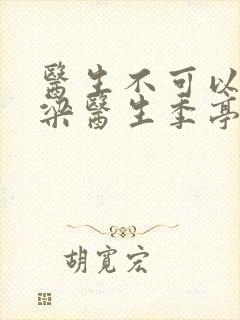 醫生不可以
梁醫生季亭
胡寬宏